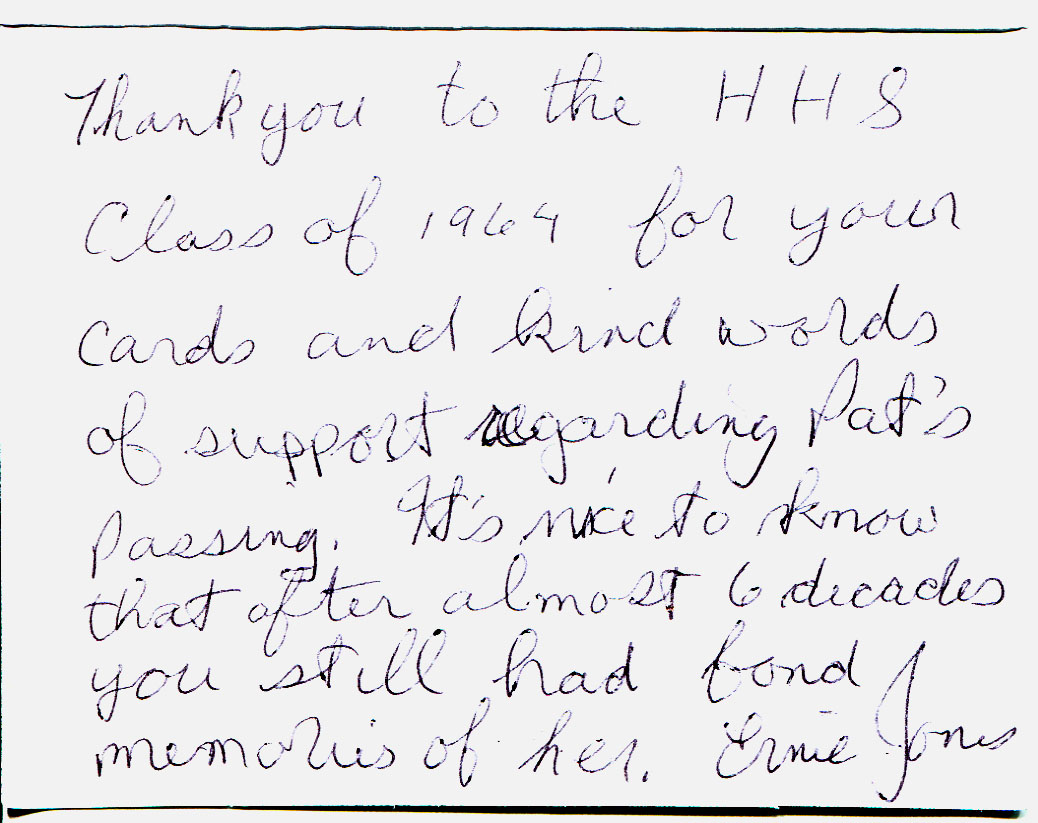 Thank you to the HHS
Class of 1964 for your
cards and kind words
of support regarding Pat's
passing. It's nice to know
that after almost 6 decades
you still had fond
memories of her. Ernie Jones